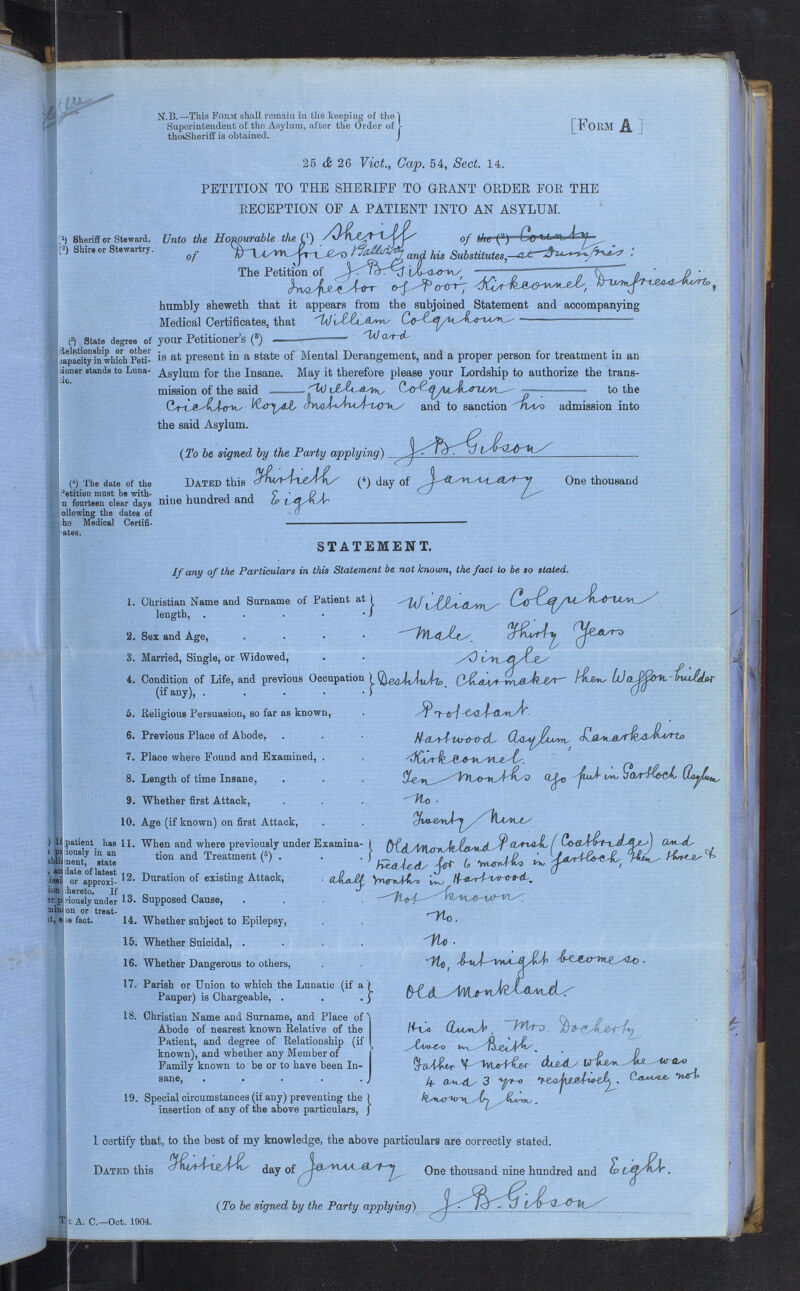 N.B.—This FORM shall remain in the keeping of the
Superintendent of the Asylum, after the Order of
the Sheriff is obtained.
[FORM A]
25 & 26 Vict., Cap. 54, Sect. 14.
PETITION TO THE SHERIFF TO GRANT ORDER FOR THE
RECEPTION OF A PATIENT INTO AN ASYLUM.
(¹) Sheriff or Steward.
(²) Shire or Stewartry.
Unto the Honourable the (¹) Sheriff of the (²) County
of Dumfries & Galloway and his Substitutes, at Dumfries:
The Petition of J. B. Gibson,
Inspector of Poor, Kirkconnel, Dumfriesshire,
humbly sheweth that it appears from the subjoined Statement and accompanying
Medical Certificates, that William Colquhoun
(³) State degree of
Relationship or other
capacity in which Peti-
tioner stands to Luna-
tic.
your Petitioner's (³) Ward
is at present in a state of Mental Derangement, and a proper person for treatment in an
Asylum for the Insane. May it therefore please your Lordship to authorize the trans-
mission of the said William Colquhoun to the
Crichton Royal Institution and to sanction his admission into
the said Asylum.
(To be signed by the Party applying) J. B. Gibson
(⁴) The date of the
Petition must be with-
in fourteen clear days
following the dates of
the Medical Certifi-
cates.
DATED this Thirtieth (⁴) day of January One thousand
nine hundred and Eight
STATEMENT.
If any of the Particulars in this Statement be not known, the fact to be so stated.
1. Christian Name and Surname of Patient at
length, . . . . . William Colquhoun
2. Sex and Age, . . . . Male. Thirty Years
3. Married, Single, or Widowed, . . Single
4. Condition of Life, and previous Occupation
(if any), . . . . . Destitute. Chairmaker then Waggon-builder
5. Religious Persuasion, so far as known, . Protestant.
6. Previous Place of Abode, . . . Hartwood Asylum, Lanarkshire
7. Place where Found and Examined, . . Kirkconnel.
8. Length of time Insane, . . . Ten months ago put in Gartloch Asylum
9. Whether first Attack, . . . No.
10. Age (if known) on first Attack, . . Twenty Nine
patient has
iously in an
ment, state
date of latest
or approxi-
hereto. If
riously under
on or treat-
e fact.
11. When and where previously under Examina-
tion and Treatment (⁵) . . . Old Monkland Parish (Coatbridge) and
treated for 6 months in Gartloch, then three &
12. Duration of existing Attack, . a half months in Hartwood.
13. Supposed Cause, . . . . Not known.
14. Whether subject to Epilepsy, . . No.
15. Whether Suicidal, . . . . No.
16. Whether Dangerous to others, . . No, but might become so.
17. Parish or Union to which the Lunatic (if a
Pauper) is Chargeable, . . . Old Monkland.
18. Christian Name and Surname, and Place of
Abode of nearest known Relative of the
Patient, and degree of Relationship (if
known), and whether any Member of
Family known to be or to have been In-
sane, . . . . .
His Aunt, Mrs. Docherty
lives in Beith.
Father & Mother died when he was
4 and 3 yrs respectively. Cause not
known by him.
19. Special circumstances (if any) preventing the
insertion of any of the above particulars,
I certify that, to the best of my knowledge, the above particulars are correctly stated.
DATED this Thirtieth day of January One thousand nine hundred and Eight.
(To be signed by the Party applying) J. B. Gibson
A. C.—Oct. 1904.